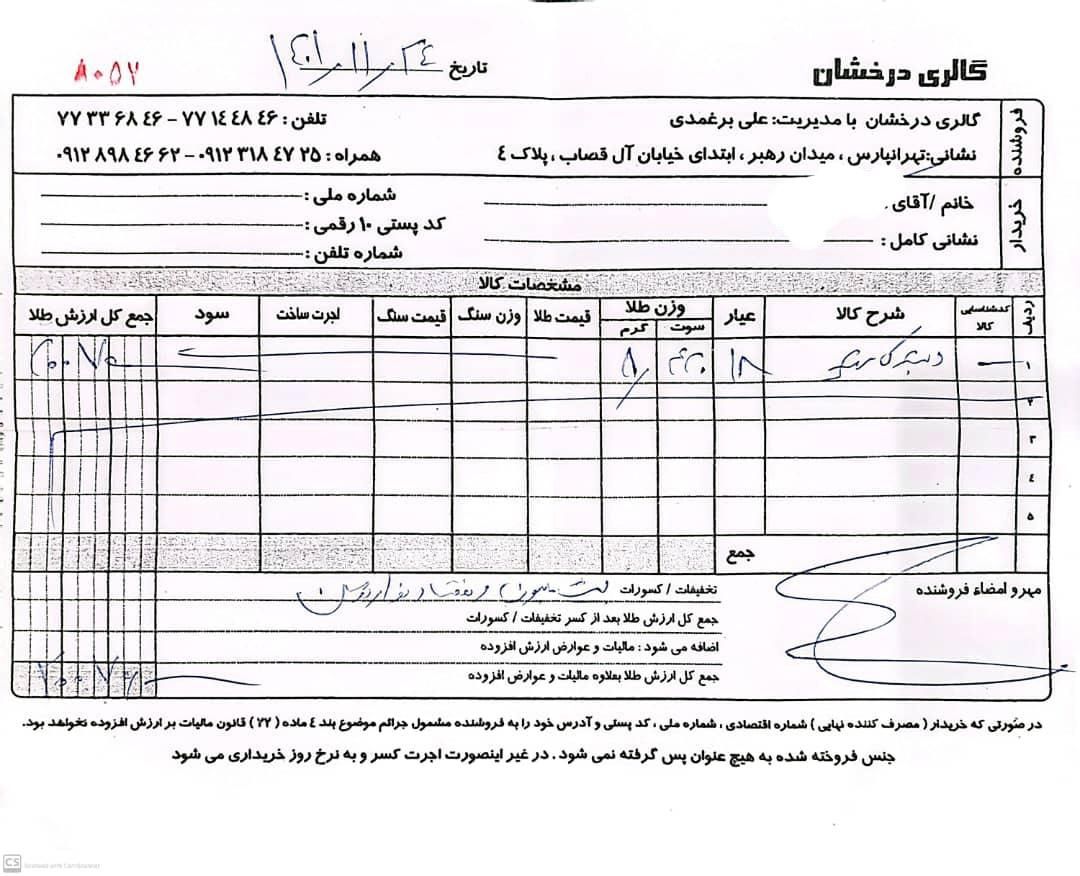 گالری درخشان
تاریخ ۱۴۰۱/۱۱/۲۴
۸۰۵۷
فروشنده
گالری درخشان با مدیریت: علی برغمدی
تلفن: ۷۷۱۴۴۸۴۶ - ۷۷۳۳۶۸۴۶
نشانی: تهرانپارس، میدان رهبر، ابتدای خیابان آل قصاب، پلاک ۴
همراه: ۰۹۱۲۳۱۸۴۷۲۵ - ۰۹۱۲۸۹۸۴۶۶۲
خریدار
خانم / آقای
شماره ملی:
کد پستی ۱۰ رقمی:
نشانی کامل:
شماره تلفن:
مشخصات کالا
ردیف کدشناسایی کالا شرح کالا عیار وزن طلا سوت گرم قیمت طلا وزن سنگ قیمت سنگ اجرت ساخت سود جمع کل ارزش طلا
۱ ۱۸
۲
۳
۴
۵
جمع
مهر و امضاء فروشنده
تخفیفات / کسورات
جمع کل ارزش طلا بعد از کسر تخفیفات / کسورات
اضافه می شود: مالیات و عوارض ارزش افزوده
جمع کل ارزش طلا بعلاوه مالیات و عوارض افزوده
در صورتی که خریدار (مصرف کننده نهایی) شماره اقتصادی، شماره ملی، کد پستی و آدرس خود را به فروشنده مشمول جرائم موضوع بند ٤ ماده (۲۲) قانون مالیات بر ارزش افزوده نخواهد بود.
جنس فروخته شده به هیچ عنوان پس گرفته نمی شود. در غیر اینصورت اجرت کسر و به نرخ روز خریداری می شود
CS Scanned with CamScanner